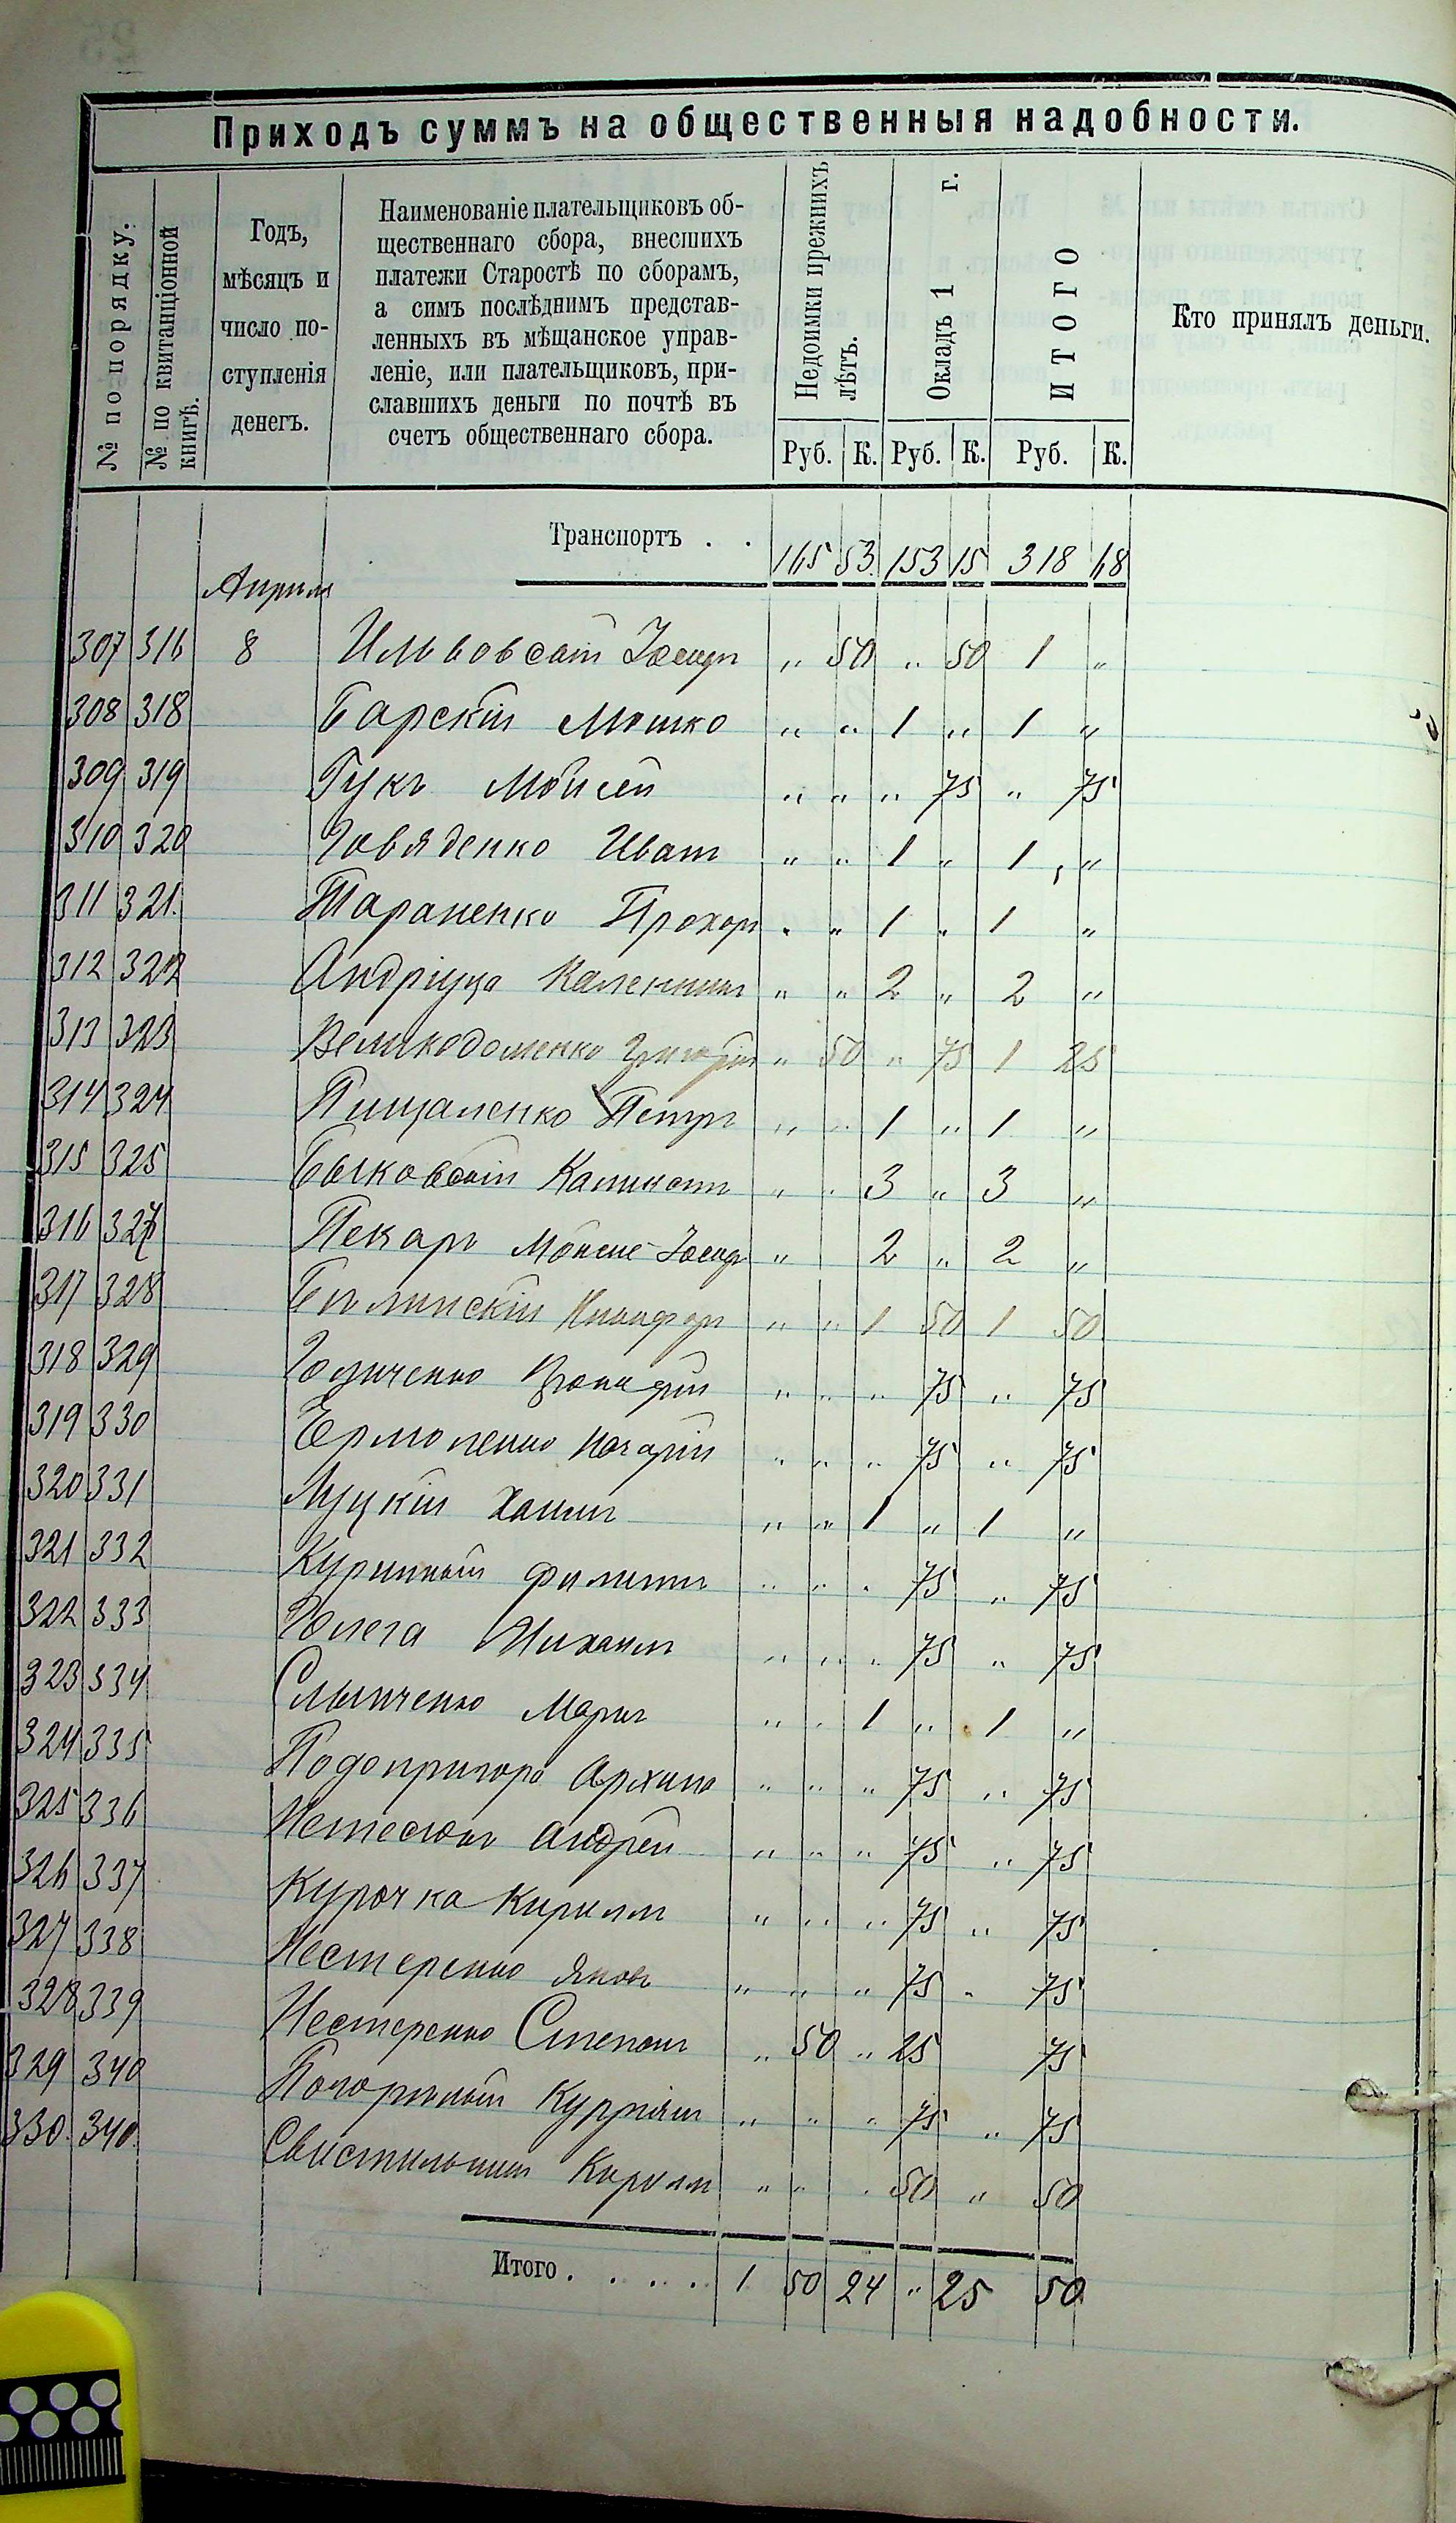 Приходъ суммъ на общественныя надобности.
№ по порядку.
№ по квитанціонной
книгѣ.
Годъ,
мѣсяцъ и
число по-
ступленія
денегъ.
Наименованіе плательщиковъ об-
щественнаго сбора, внесшихъ
платежи Старостѣ по сборамъ,
а симъ послѣднимъ представ-
ленныхъ въ мѣщанское управ-
леніе, или плательщиковъ, при-
славшихъ деньги по почтѣ въ
счетъ общественнаго сбора.
Недоимки прежнихъ
лѣтъ.
Окладъ 1 г.
ИТОГО
Кто принялъ деньги.
Руб. К. Руб. К. Руб. К.
Транспортъ . . 165 53 153 15 318 68
Апрѣля
307 316 8 „ 50 „ 50 1 „
308 318 Барскій Мошко „ „ 1 „ 1 „
309 319 Гукъ Мойсей „ „ „ 75 „ 75
310 320 Говяденко Иванъ „ „ 1 „ 1 „
311 321. Тараненко Прохоръ „ „ 1 „ 1 „
312 322 Андріуца „ „ 2 „ 2 „
313 323 Великодоменко Григорій „ 50 „ 75 1 25
314 324 Пищаленко Петръ „ „ 1 „ 1 „
315 325 Быковскій „ „ 3 „ 3 „
316 327 Пекарь „ 2 „ 2 „
317 328 Никифоръ „ „ 1 50 1 50
318 329 „ „ „ 75 „ 75
319 330 Ермоленко „ „ „ 75 „ 75
320 331 Луцкій Хаимъ „ „ 1 „ 1 „
321 332 Куринный Филиппъ „ „ „ 75 „ 75
322 333 Михаилъ „ „ „ 75 „ 75
323 334 „ „ 1 „ 1 „
324 335 Подопригора Архипъ „ „ „ 75 „ 75
325 336 Андрей „ „ „ 75 „ 75
326 337 Курочка Кириллъ „ „ „ 75 „ 75
327 338 Нестеренко Яковъ „ „ „ 75 „ 75
328 339 Нестеренко Степанъ „ 50 „ 25 75
329 340 „ „ „ 75 „ 75
330. 340. Кириллъ „ „ „ 50 „ 50
Итого . . . . . 1 50 24 „ 25 50